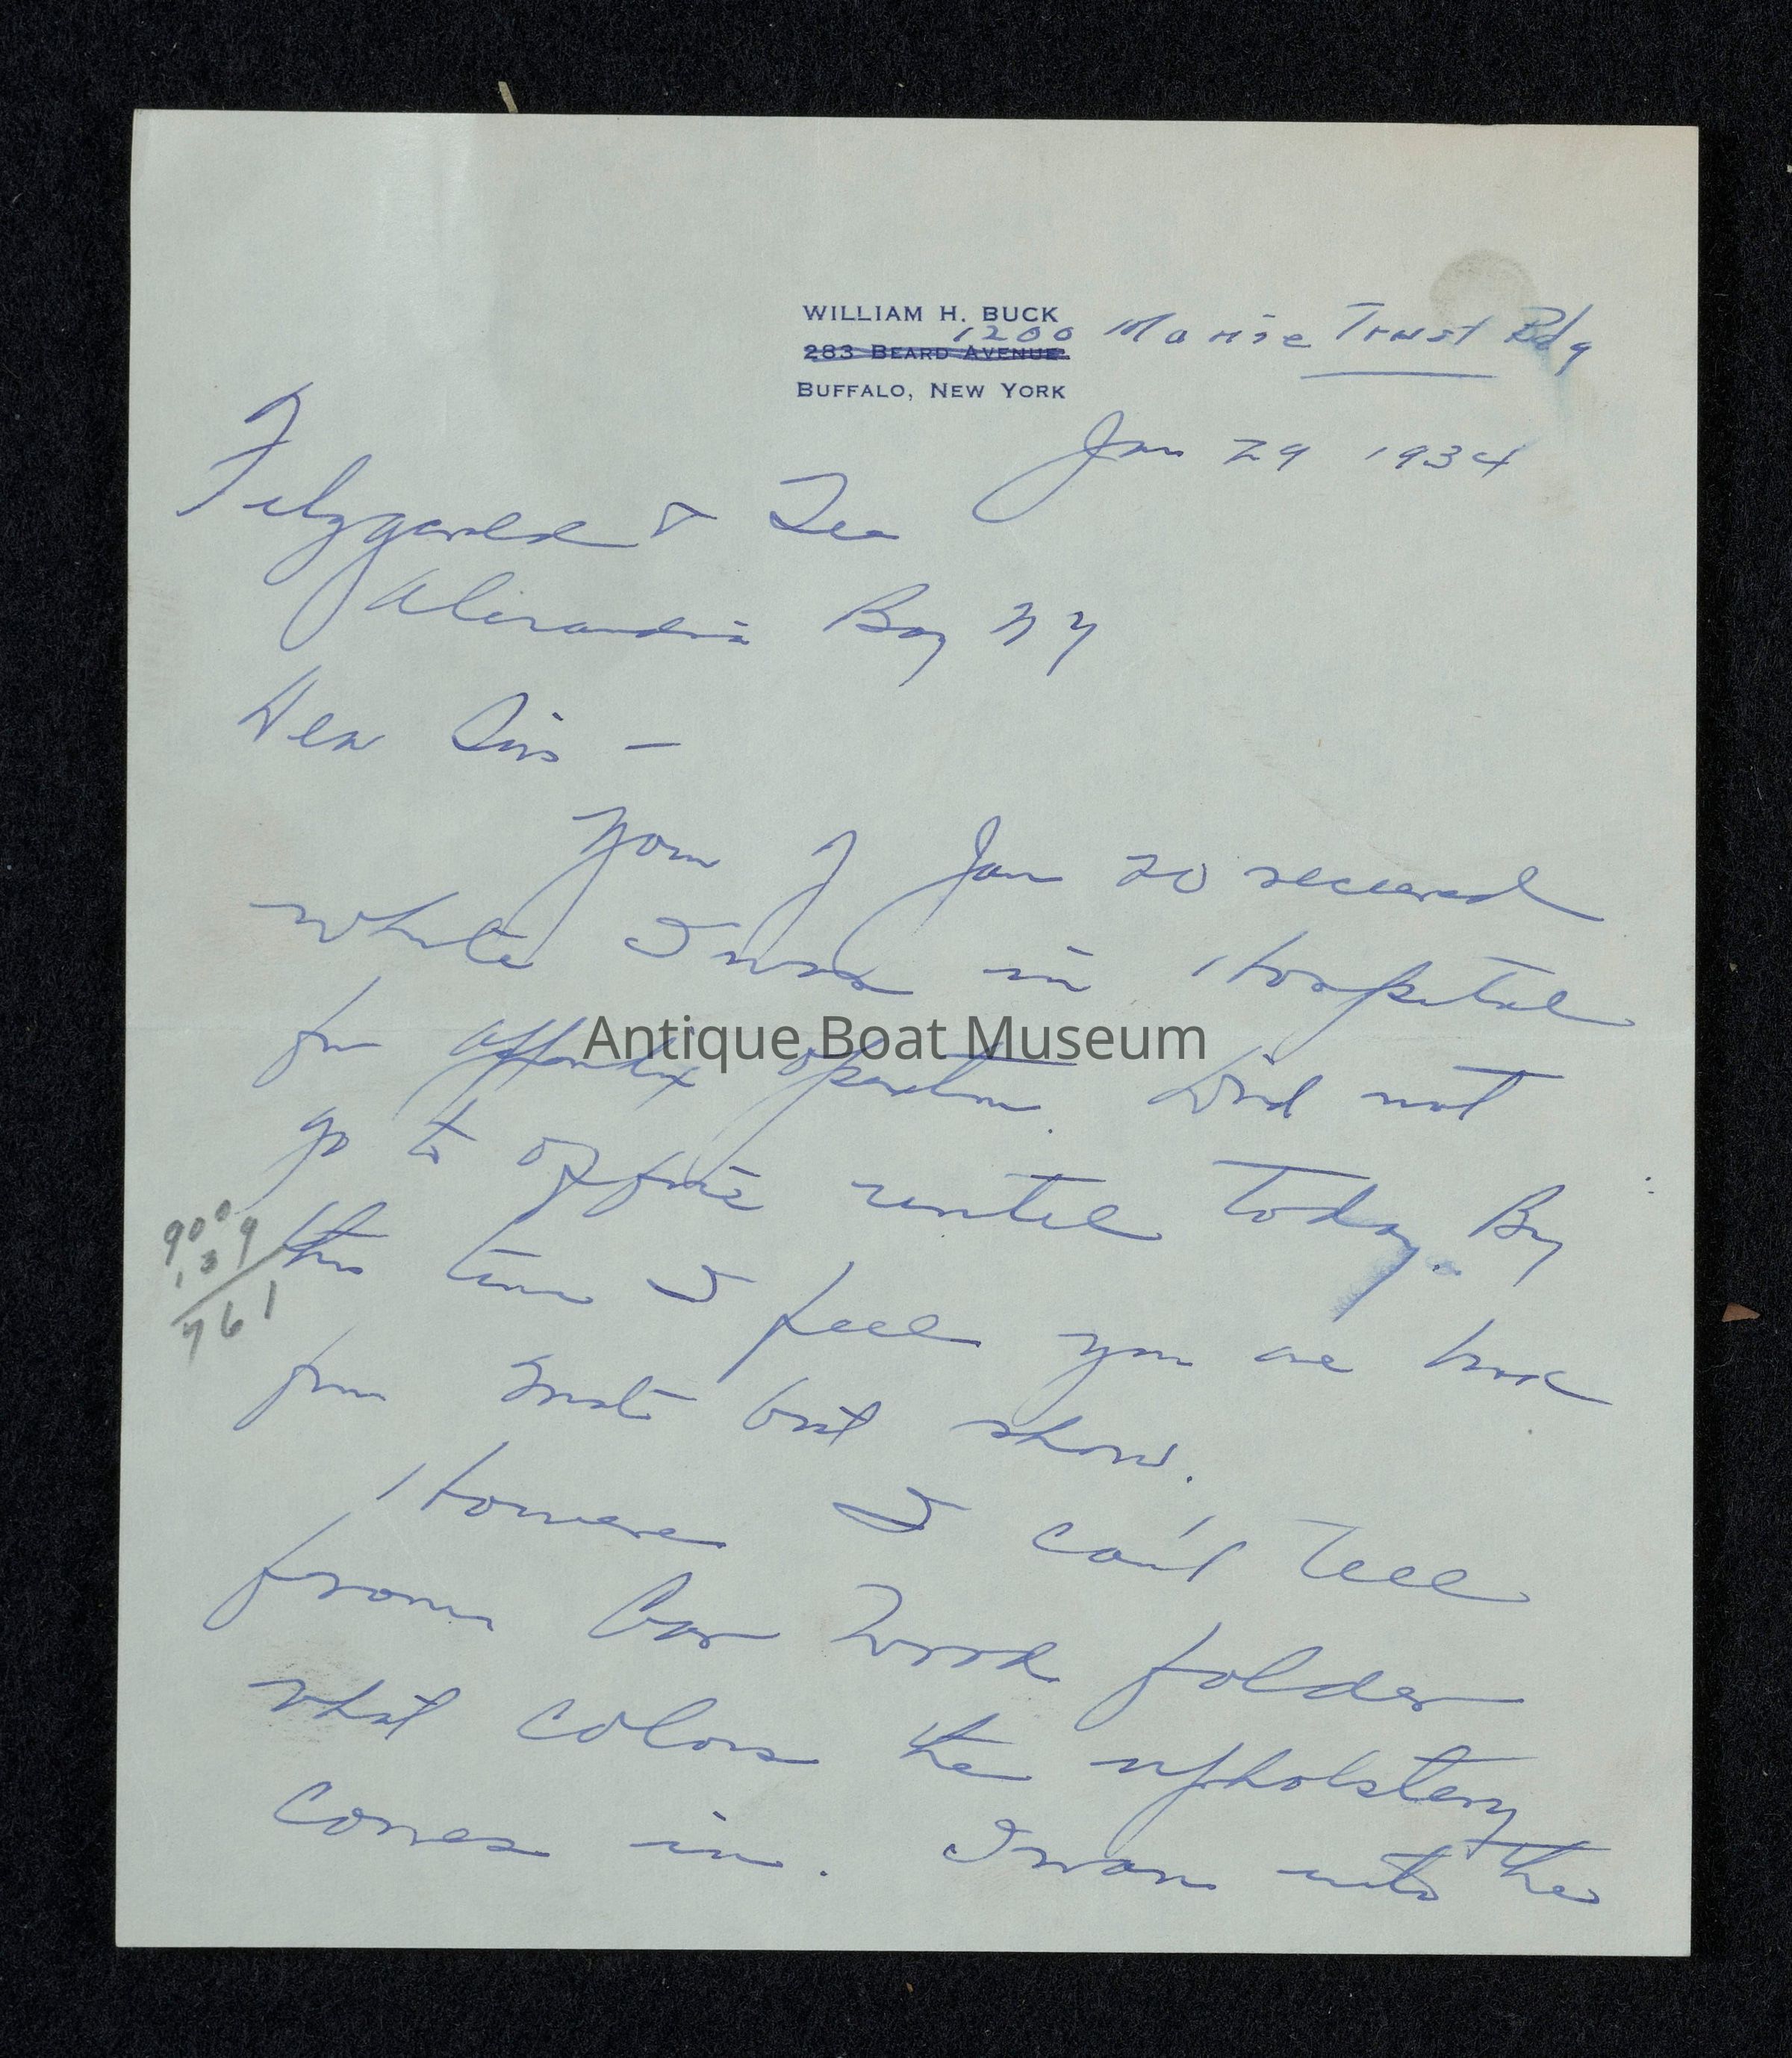 WILLIAM H. BUCK
1200 Marine Trust Bldg
283 BEARD AVENUE
BUFFALO, NEW YORK
Jan 29 1934
Fitzgerald & Lee
Alexandria Bay NY
Dear Sirs —
Yours of Jan 20 received
while I was in Hospital
for appendix operation. Did not
go to office until today. By
this time I feel you are back
from boat show.
However I can't tell
from Gar Wood folder
what colors the upholstery
comes in. I was into the
900
139
761
Antique Boat Museum